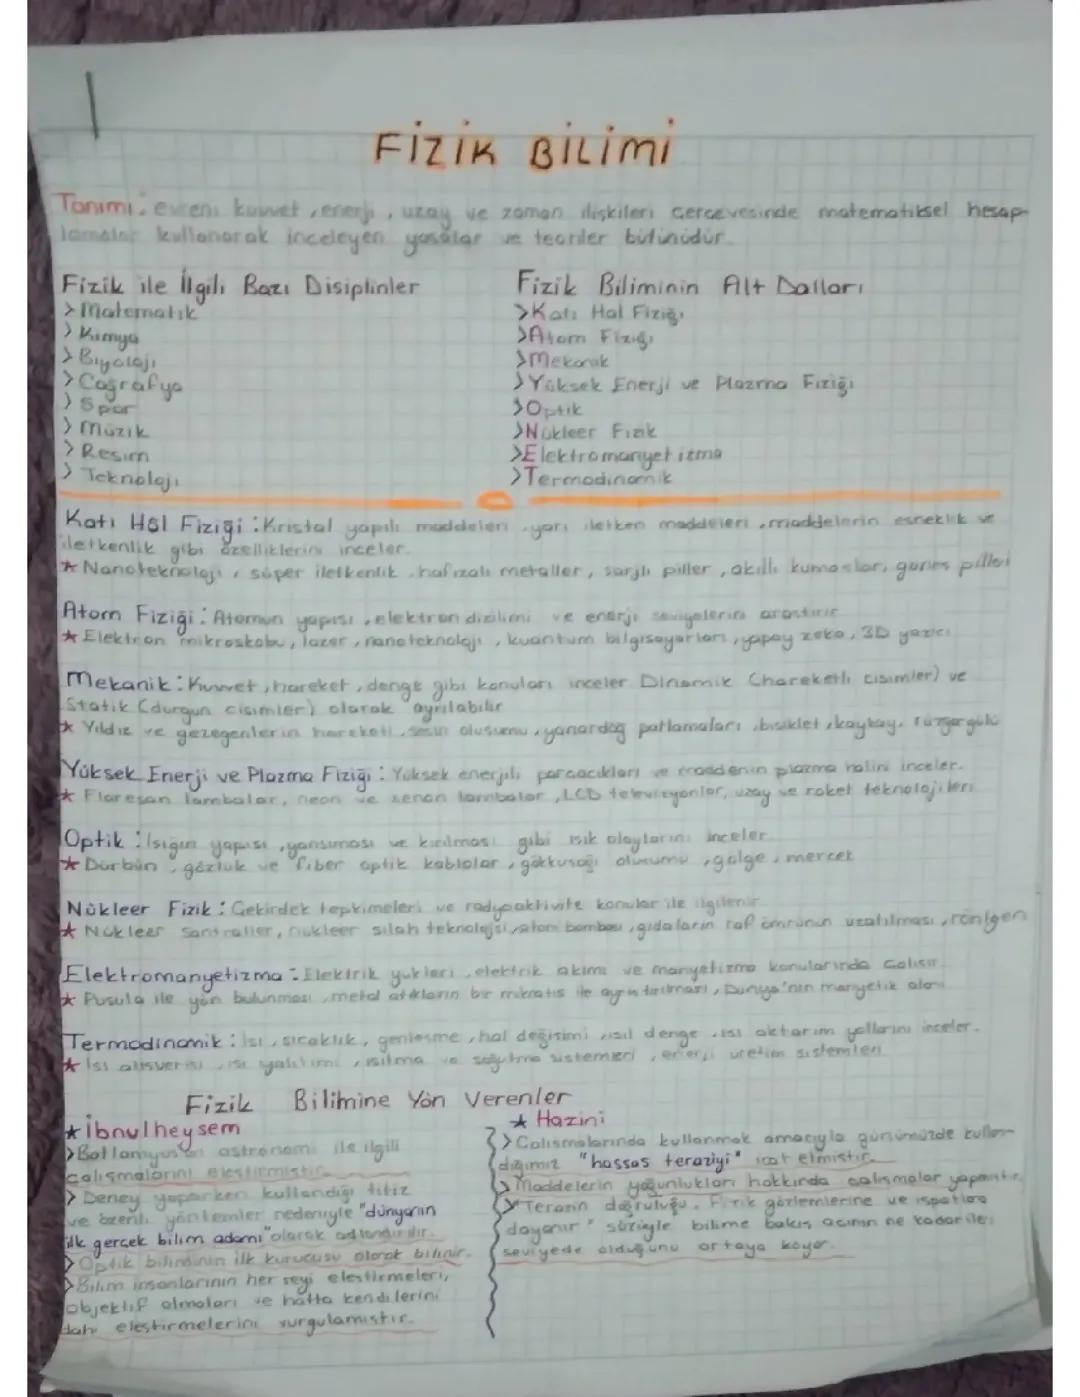 FİZİK BİLİMİ
Tanımı: evreni kuvvet, enerji, uzay ve zaman ilişkileri çerçevesinde matematiksel hesap-
lamalar kullanarak inceleyen yasalar ve teoriler bütünüdür.
Fizik ile İlgili Bazı Disiplinler
> Matematik
> Kimya
> Biyoloji
> Coğrafya
> Spor
> Müzik
> Resim
> Teknoloji
Fizik Biliminin Alt Dalları
> Katı Hal Fiziği
> Atom Fiziği
> Mekanik
> Yüksek Enerji ve Plazma Fiziği
> Optik
> Nükleer Fizik
> Elektromanyetizma
> Termodinamik
Katı Hâl Fiziği: Kristal yapılı maddeleri, yarı iletken maddeleri, maddelerin esneklik ve
iletkenlik gibi özelliklerini inceler.
* Nanoteknoloji, süper iletkenlik, hafızalı metaller, şarjlı piller, akıllı kumaşlar, güneş pilleri
Atom Fiziği: Atomun yapısı, elektron dizilimi ve enerji seviyelerini araştırır.
* Elektron mikroskobu, lazer, nanoteknoloji, kuantum bilgisayarları, yapay zeka, 3D yazıcı
Mekanik: Kuvvet, hareket, denge gibi konuları inceler. Dinamik (hareketli cisimler) ve
Statik (durgun cisimler) olarak ayrılabilir.
* Yıldız ve gezegenlerin hareketi, sesin oluşumu, yanardağ patlamaları, bisiklet, kaykay, rüzgargülü
Yüksek Enerji ve Plazma Fiziği: Yüksek enerjili parçacıkları ve maddenin plazma halini inceler.
* Floresan lambalar, neon ve xenon lambalar, LCD televizyonlar, uzay ve roket teknolojileri
Optik: Işığın yapısı, yansıması ve kırılması gibi ışık olaylarını inceler.
* Dürbün, gözlük ve fiber optik kablolar, gökkuşağı oluşumu, gölge, mercek
Nükleer Fizik: Çekirdek tepkimeleri ve radyoaktivite konuları ile ilgilenir.
* Nükleer santraller, nükleer silah teknolojisi, atom bombası, gıdaların raf ömrünün uzatılması, röntgen
Elektromanyetizma: Elektrik yükleri, elektrik akımı ve manyetizma konularında çalışır.
* Pusula ile yön bulunması, metal atıkların bir mıknatıs ile ayrıştırılması, Dünya'nın manyetik alanı
Termodinamik: Isı, sıcaklık, genleşme, hal değişimi, ısıl denge, ısı aktarım yollarını inceler.
* Isı alışverişi, ısı yalıtımı, ısıtma ve soğutma sistemleri, enerji üretim sistemleri
Fizik Bilimine Yön Verenler
* İbnulheysem
> Batlamyus'un astronomi ile ilgili
çalışmalarını eleştirmiştir.
> Deney yaparken kullandığı titiz
ve özenli yöntemler nedeniyle "dünyanın
ilk gerçek bilim adamı" olarak adlandırılır.
> Optik biliminin ilk kurucusu olarak bilinir.
> Bilim insanlarının her şeyi eleştirmeleri,
objektif olmaları ve hatta kendilerini
dahi eleştirmelerini vurgulamıştır.
* Hazini
> Çalışmalarında kullanmak amacıyla günümüzde kullan-
dığımız "hassas teraziyi" icat etmiştir.
> Maddelerin yoğunlukları hakkında çalışmalar yapmıştır.
> "Terazin doğruluğu, Fizik gözlemlerine ve ispatlara
dayanır" sözüyle bilime bakış açının ne kadar ileri
seviyede olduğunu ortaya koyar.